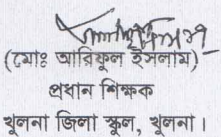 (মোঃ আরিফুল ইসলাম)
প্রধান শিক্ষক
খুলনা জিলা স্কুল, খুলনা।